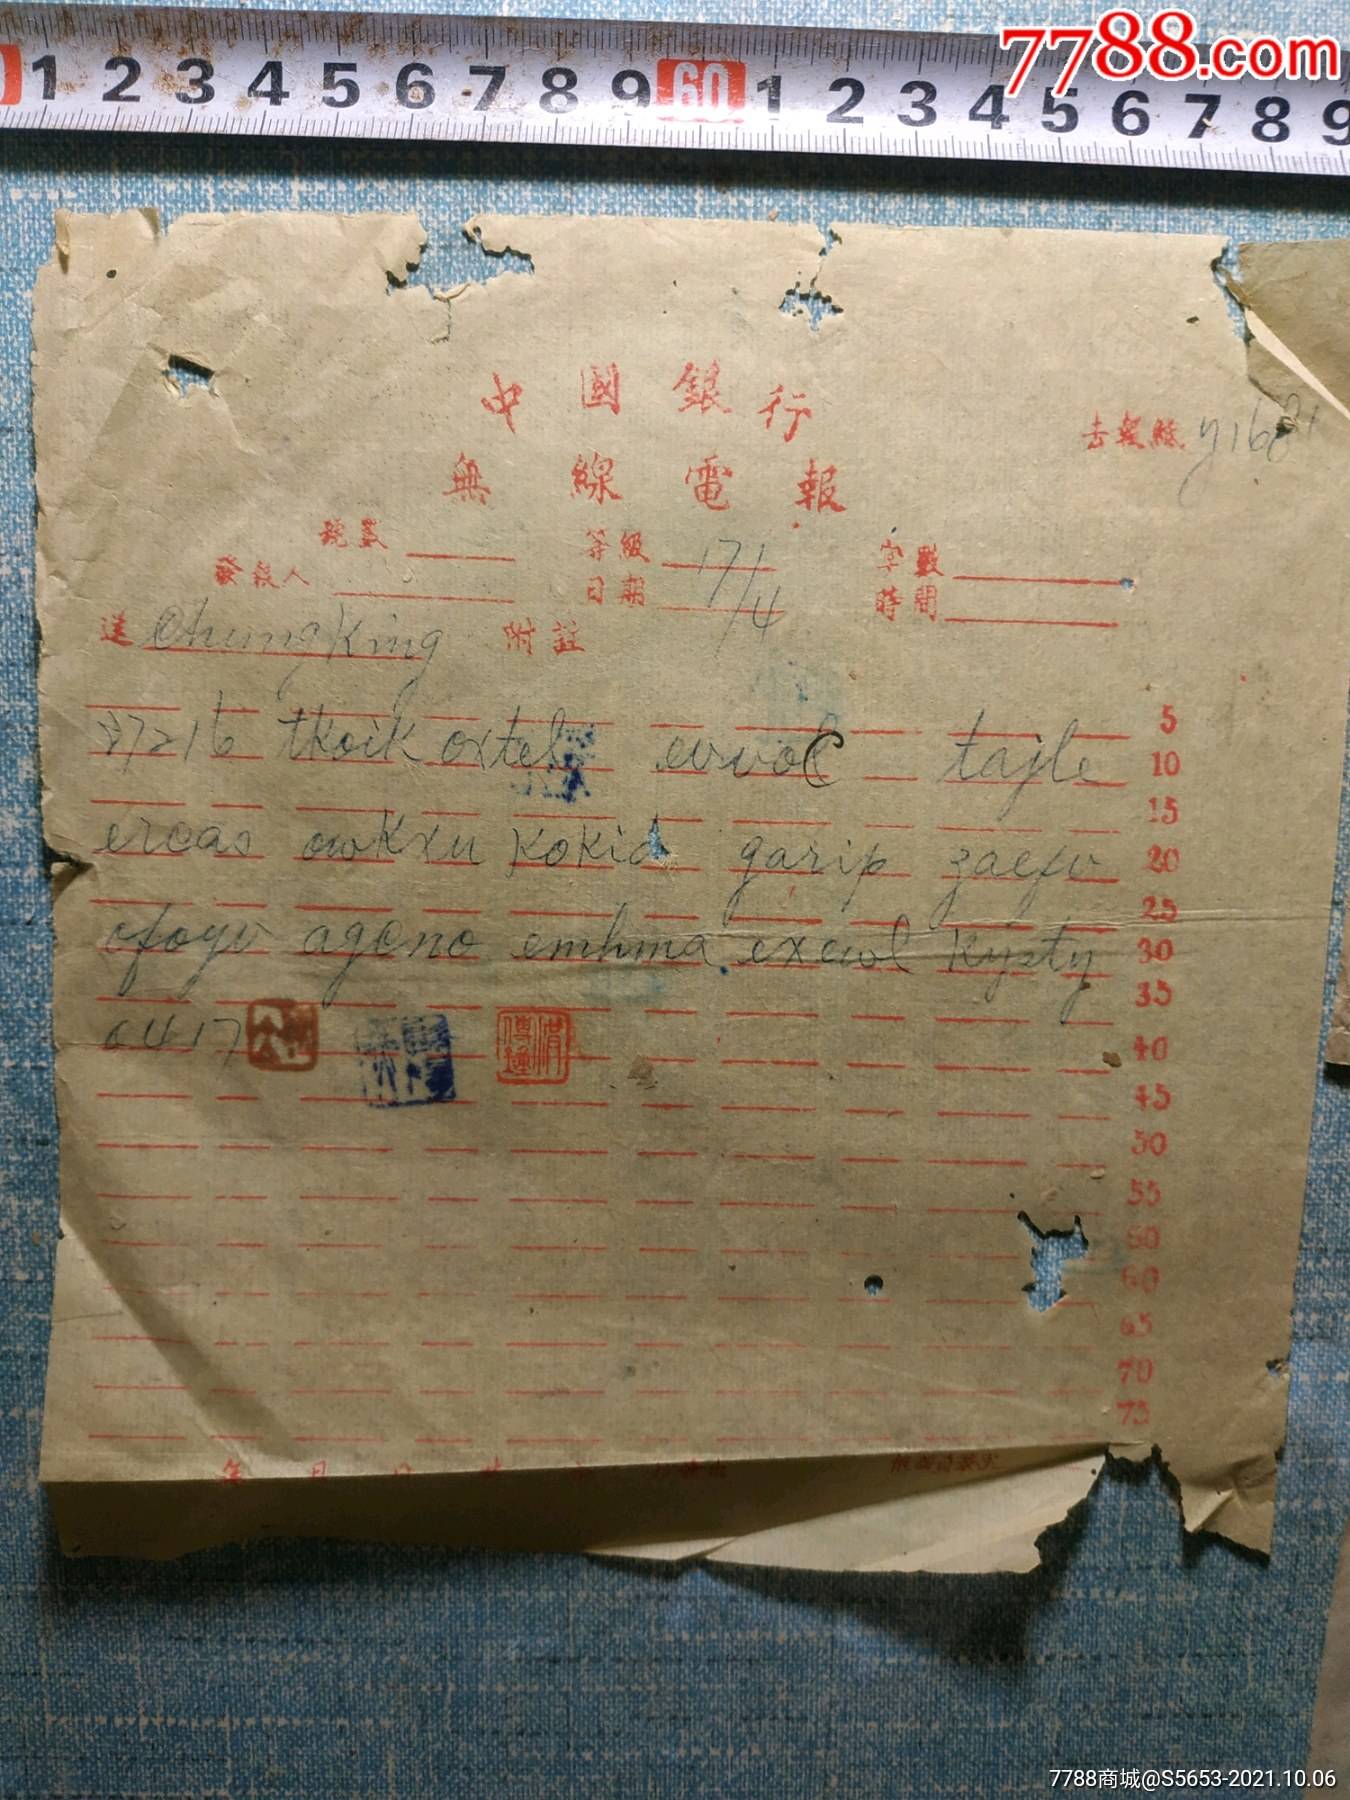 1 2 3 4 5 6 7 8 9 60 1 2 3 4 5 6 7 8 9
7788.com
中國銀行
去報 y16
無線電報
號數 等級 字數
發報人 日期 17/4 時間
送 Chungking 附註
5
37216 tkoik oxtel evvol tajle 10
15
ercas owkxu kokid garip zaefv 20
25
cfoyv ageno emhma exewl kyzty 30
35
6417 40
45
50
55
60
60
65
70
75
年 月 日
7788商城@S5653-2021.10.06